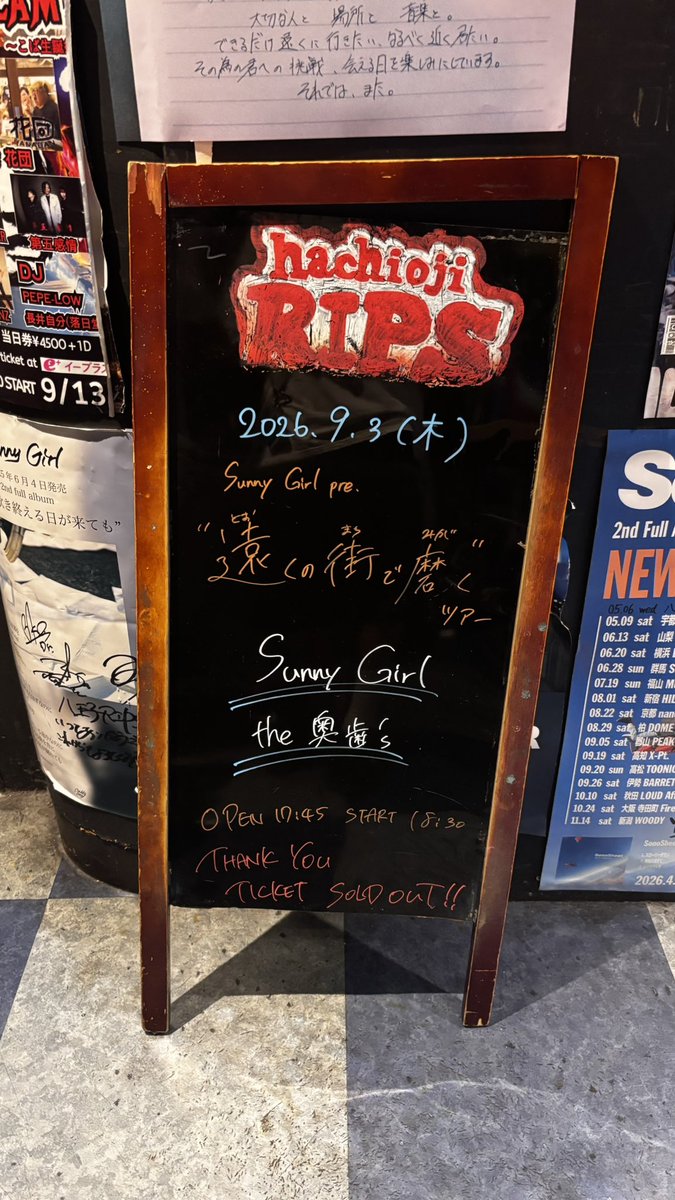 大切な人と 場所と 音楽と。
できるだけ遠くに行きたい、なるべく近く居たい。
その為の君への挑戦、会える日を楽しみにしています。
それでは、また。
花団
花団
第五感情
DJ
PEPE-LOW
長井自分(落日
当日券¥4500+1D
ticket at e+ イープラス
START 9/13
nny Girl
5年6月4日発売
2nd full album
き終える日が来ても”
hachioji
RIPS
2026.9.3(木)
Sunny Girl pre.
“遠くの街で磨く”
とお まち みがく
ツアー
Sunny Girl
the 奥歯's
OPEN 17:45 START 18:30
THANK YOU
TICKET SOLD OUT!!
2nd Full A
NEW
05.06 wed 八
05.09 sat 宇都
06.13 sat 山梨
06.20 sat 横浜
06.28 sun 群馬 S
07.19 sun 福山 M
08.01 sat 新宿 HIL
08.22 sat 京都 nan
08.29 sat 柏 DOME
09.05 sat 郡山 PEAK
09.19 sat 高知 X-Pt.
09.20 sun 高松 TOONIC
09.26 sat 伊勢 BARRET
10.10 sat 秋田 LOUD Aff
10.24 sat 大阪 寺田町 Fire
11.14 sat 新潟 WOODY
2026.4.